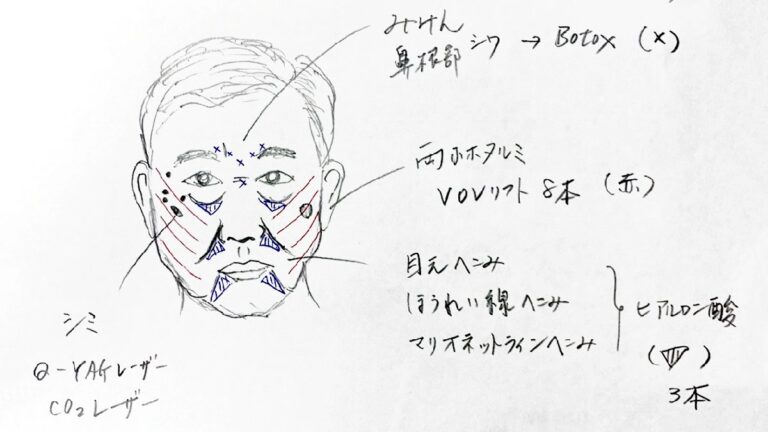 みけん
鼻根部 シワ → Botox (×)
両ホホタルミ
VOVリフト 8本 (赤)
目元ヘこみ
ほうれい線ヘこみ
マリオネットラインヘこみ
ヒアルロン酸
(▽)
3本
シミ
Q-YAGレーザー
CO₂レーザー